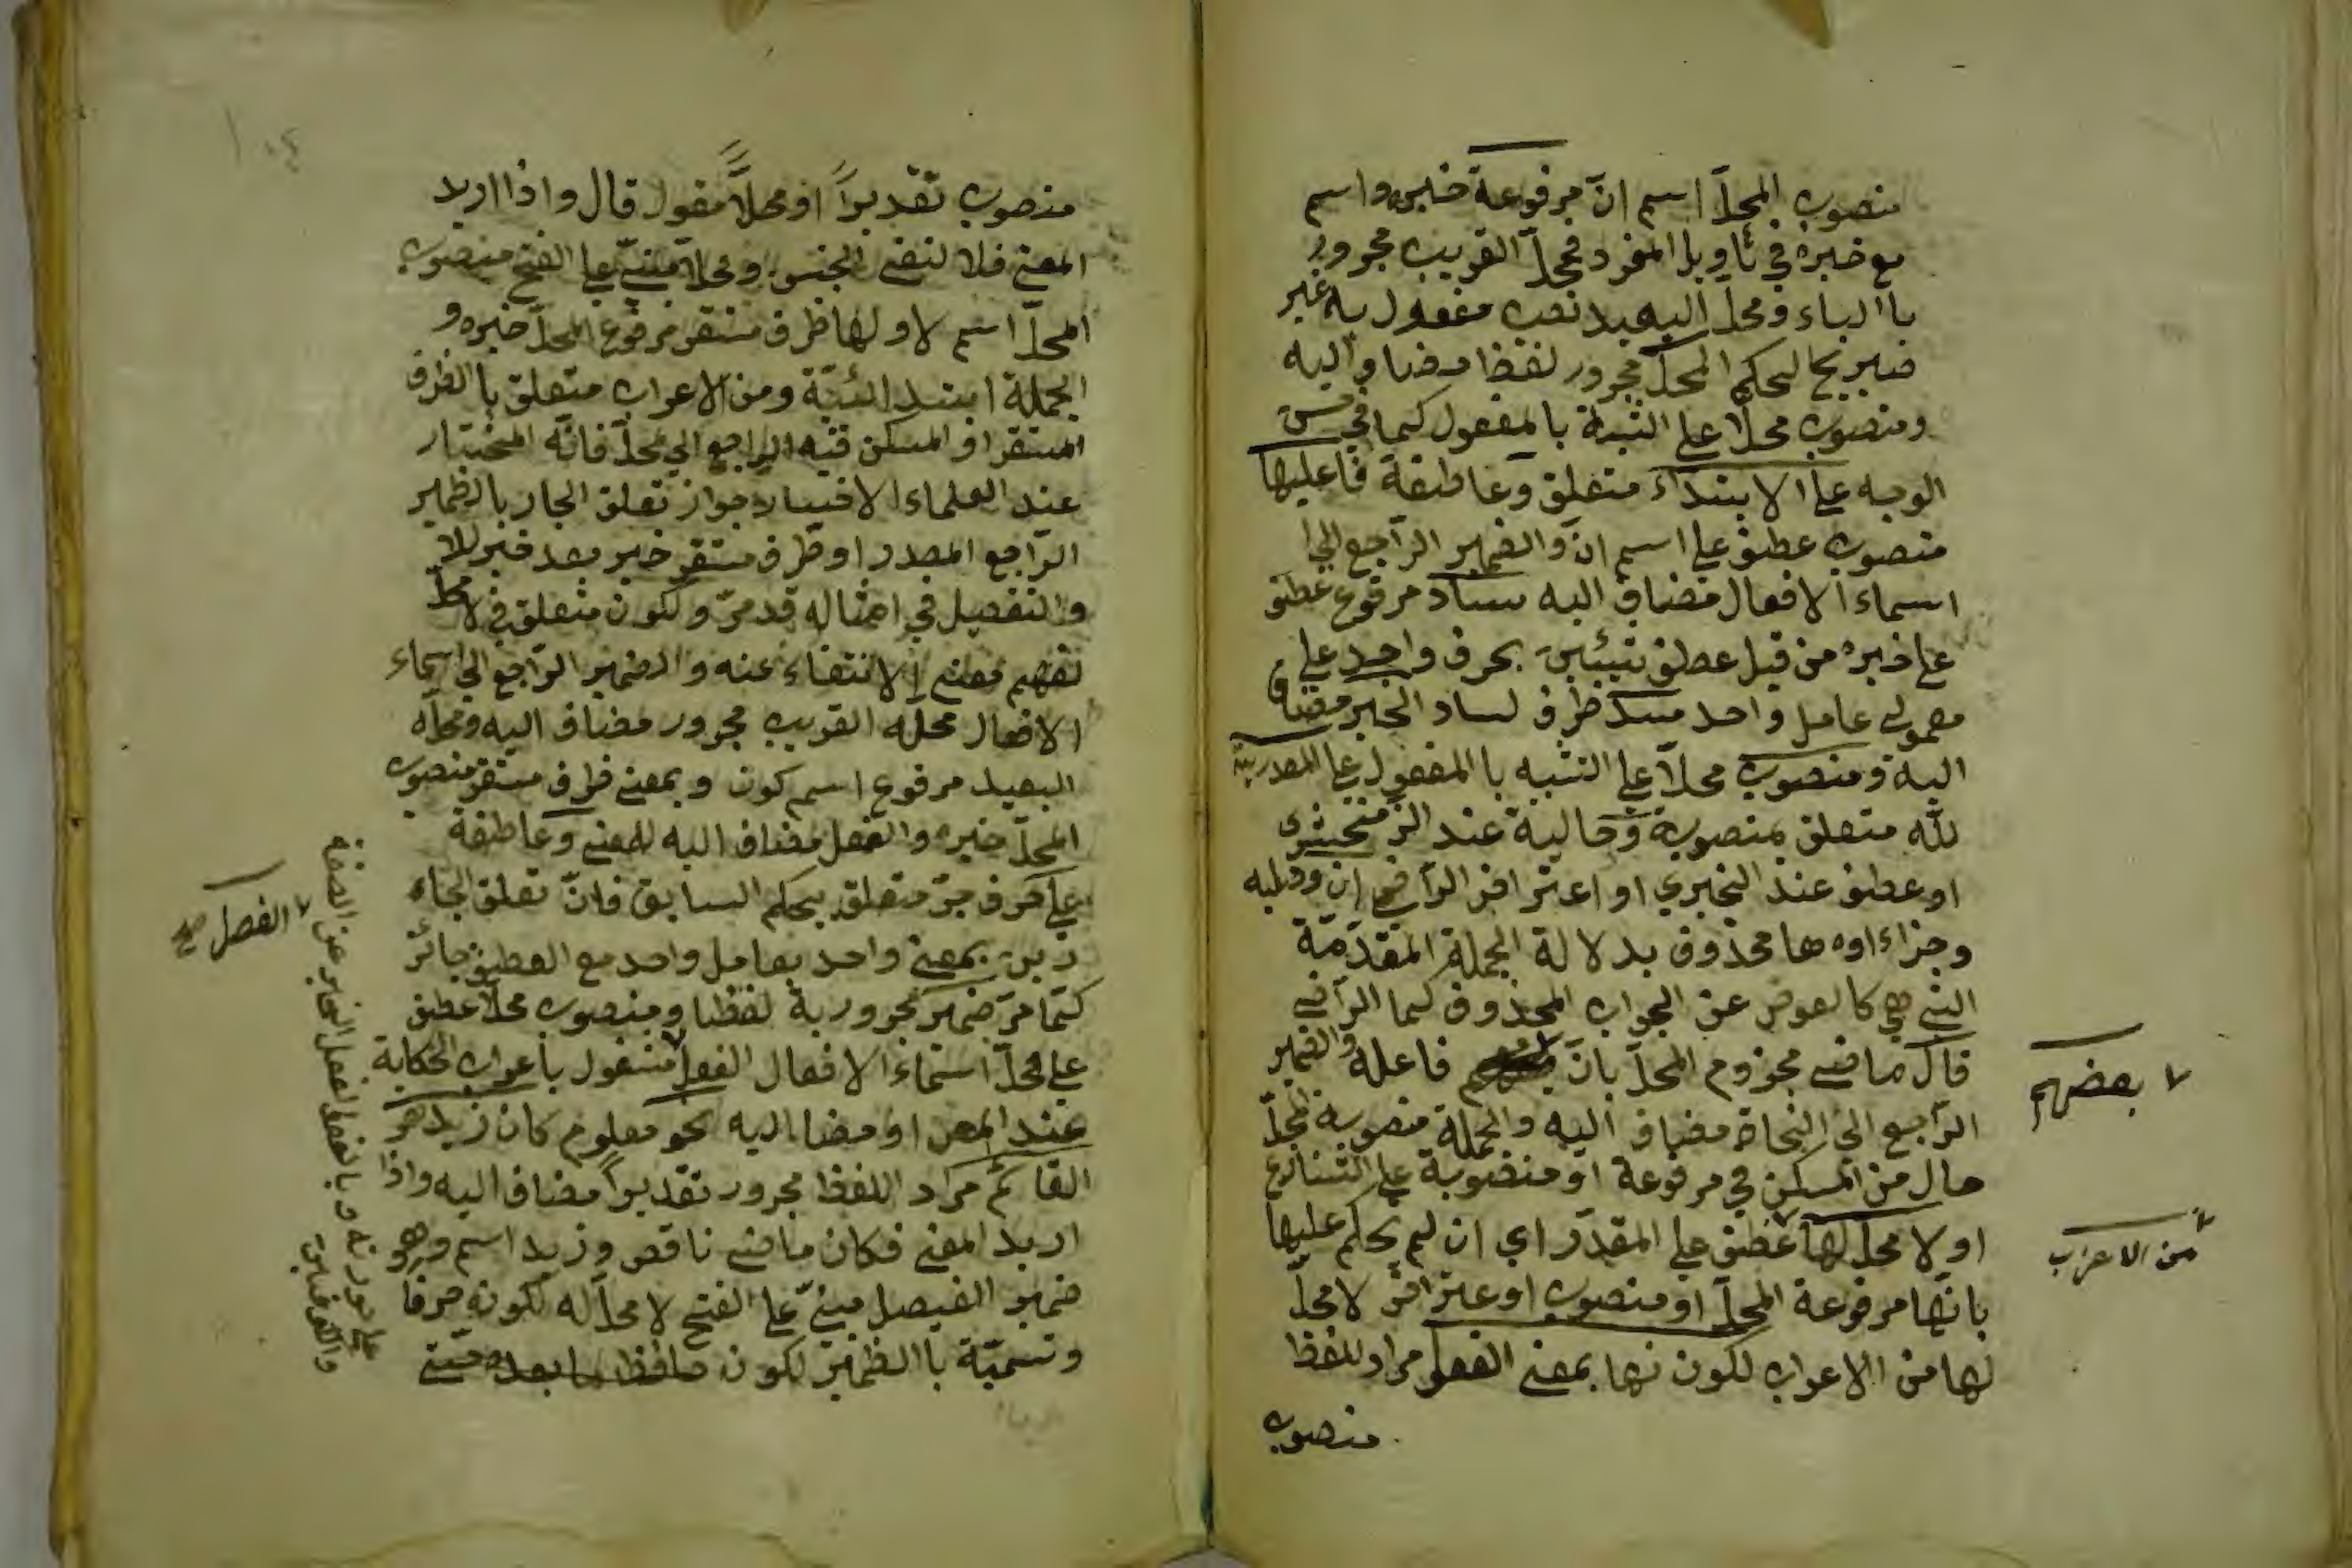 منصوب المحلّ اسم انّ مرفوعة خبره واسم
مع خبره في تاويل المفرد فمحلّ القريب مجرور
با الباء ومحلّ البعيد نصب مفعول به غير
صريح لحكم المحلّ مجرور لفظا مضاف اليه
ومنصوب محلّا على التشبه بالمفعول كما في حسن
الوجه على الابتداء متعلق وعاطفة فاعليها
منصوب عطف على اسم انّ والضمير الراجع الى
اسماء الافعال مضاف اليه ساد مرفوع عطف
على خبره من قبل عطف شيئين بحرف واحد على
معمولي عامل واحد مسد ظرف لساد الخبر مضاف
اليه ومنصوب محلّا على التشبه با المفعول على المصدرية
لله متعلق بمنصوبة وحالية عند الزمخشرى
او عطف عند الخبري او اعتراض الرّاضي ان وصلية
وجزاءاوه ها محذوف بدلالة الجملة المقدّمة
التي هي كالعوض عن الجواب المحذوف كما الراضي
قال ماضي مجزوم المحلّ بانّ فاعله والضمير
الرّاجع الى النحاة مضاف اليه والجملة منصوبة المحلّ
حال من المسكن في مرفوعة او منصوبة على التنازع
او لا محلّ لها عطف على المقدّر اي ان لم يحكم عليها
بانّها مرفوعة المحلّ او منصوب او عتراض لا محلّ
لها من الاعراب لكون نها بمعنى الفعل مراد للفظ
منصوب
٧ بعضهم
٧ من الاعراب
منصوب تقديراً او محلاًّ مقول قال واذا اريد
المعنى فلا لنفى الجنس ومحلّا مبنيّ على الفتح منصوب
المحلّ اسم لا ولها ظرف مستقر مرفوع المحلّ خبره و
الجملة ابتدائيّة ومن الاعراب متعلق با الظرف
المستقر او المسكن فيه الراجع الى محلّ فانّه المختار
عند العلماء الاختيار جواز تعلق الجار بالظمير
الرّاجع المصدر او ظرف مستقر خبر بعد خبر للا
والتفصيل في امثاله قد مرّ ولكون متعلق في لا محلّ
لفهم معنى الانتفاء عنه والضمير الرّاجع الى اسماء
الافعال محله القريب مجرور مضاف اليه ومحلّه
البعيد مرفوع اسم كون وبمعنى ظرف مستقر منصوب
المحلّ خبره والفعل مضاف اليه للمعنى وعاطفة
على حرف جرّ متعلق بحكم السابق فانّ تعلق الجاء
رين بمعنى واحد بعامل واحد مع العطف جائز
كما مرّ ضمير مجرور به لفظا ومنصوب محلا عطف
على محلّ اسماء الافعال الفعل مشغول باعراب الحكاية
عند المص او مضا اليه نحو معلوم كان زيد هو
القائم مراد اللفظ مجرور تقديراً مضاف اليه واذا
اريد المعنى فكان ماضي ناقص وزيد اسم وهو
ضمير الفيصل مبنيّ على الفتح لا محلّ له لكونه حرفا
وتسميّة با الظمير لكون حافظ ما بعده
٧ الفصل صح